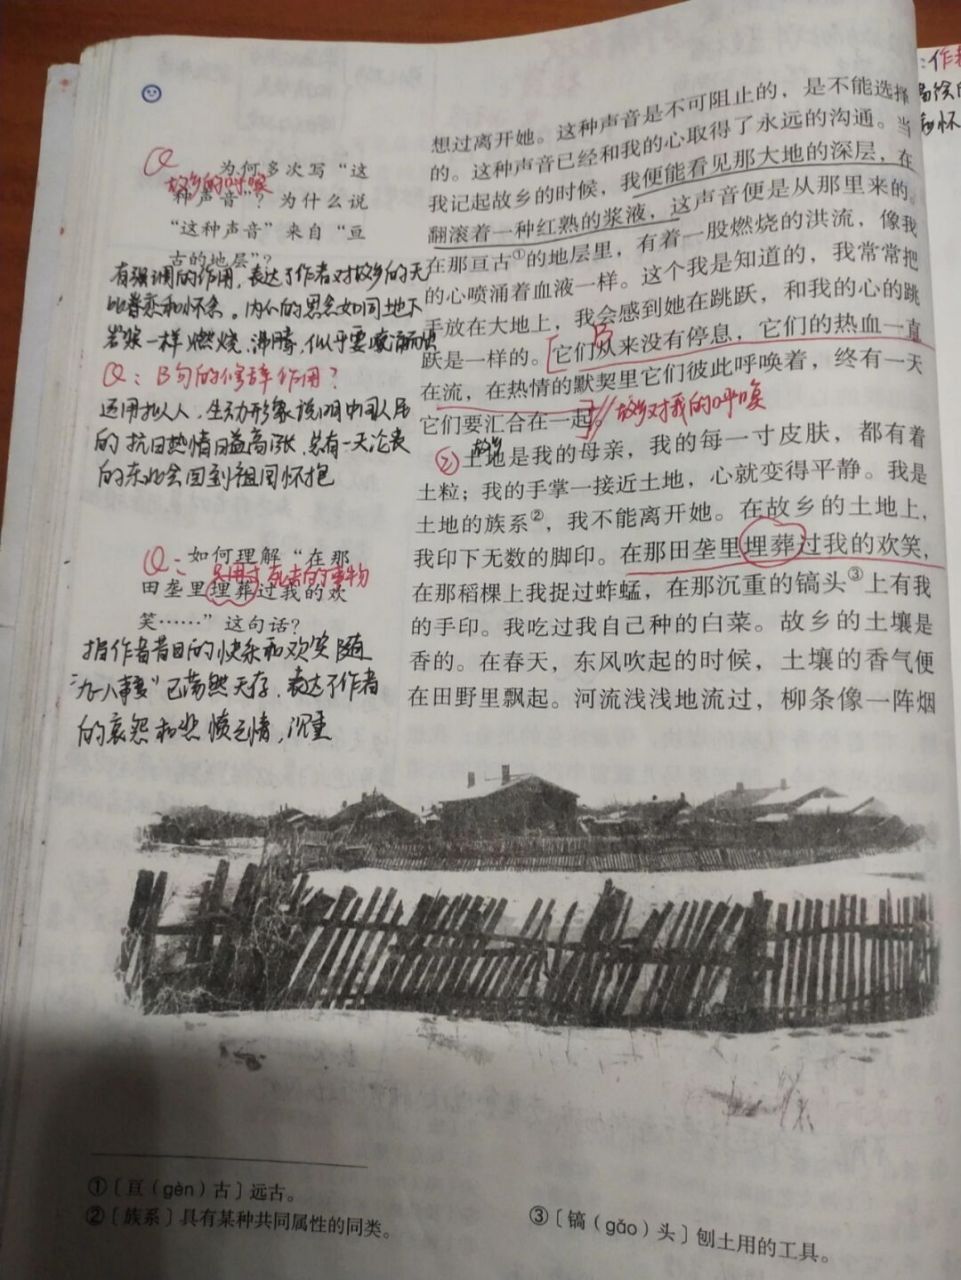 想过离开她。这种声音是不可阻止的，是不能选择
的。这种声音已经和我的心取得了永远的沟通。当
我记起故乡的时候，我便能看见那大地的深层，在
翻滚着一种红熟的浆液，这声音便是从那里来的。
在那亘古①的地层里，有着一股燃烧的洪流，像我
的心喷涌着血液一样。这个我是知道的，我常常把
手放在大地上，我会感到她在跳跃，和我的心的跳
B
跃是一样的。它们从来没有停息，它们的热血一直
在流，在热情的默契里它们彼此呼唤着，终有一天
它们要汇合在一起。
故乡对我的呼唤
② 土地是我的母亲，我的每一寸皮肤，都有着
故乡
土粒；我的手掌一接近土地，心就变得平静。我是
土地的族系②，我不能离开她。在故乡的土地上，
我印下无数的脚印。在那田垄里埋葬过我的欢笑，
在那稻棵上我捉过蚱蜢，在那沉重的镐头③上有我
的手印。我吃过我自己种的白菜。故乡的土壤是
香的。在春天，东风吹起的时候，土壤的香气便
在田野里飘起。河流浅浅地流过，柳条像一阵烟
Q
为何多次写“这
故乡的呼唤
种声音”？为什么说
“这种声音”来自“亘
古的地层”？
有强调的作用，表达了作者对故乡的无
比眷恋和怀念。内心的思念如同地下
岩浆一样燃烧、沸腾，似乎要喷涌而出
Q：B句的修辞作用？
运用拟人，生动形象说明中国人民
的抗日热情日益高涨，总有一天沦丧
的东北会回到祖国怀抱
Q：如何理解“在那
只用于死者的事物
田垄里埋葬过我的欢
笑……”这句话？
指作者昔日的快乐和欢笑随
“九一八事变”已荡然无存，表达了作者
的哀怨和悲愤之情，沉重
①〔亘（gèn）古〕远古。
②〔族系〕具有某种共同属性的同类。
③〔镐（gǎo）头〕刨土用的工具。